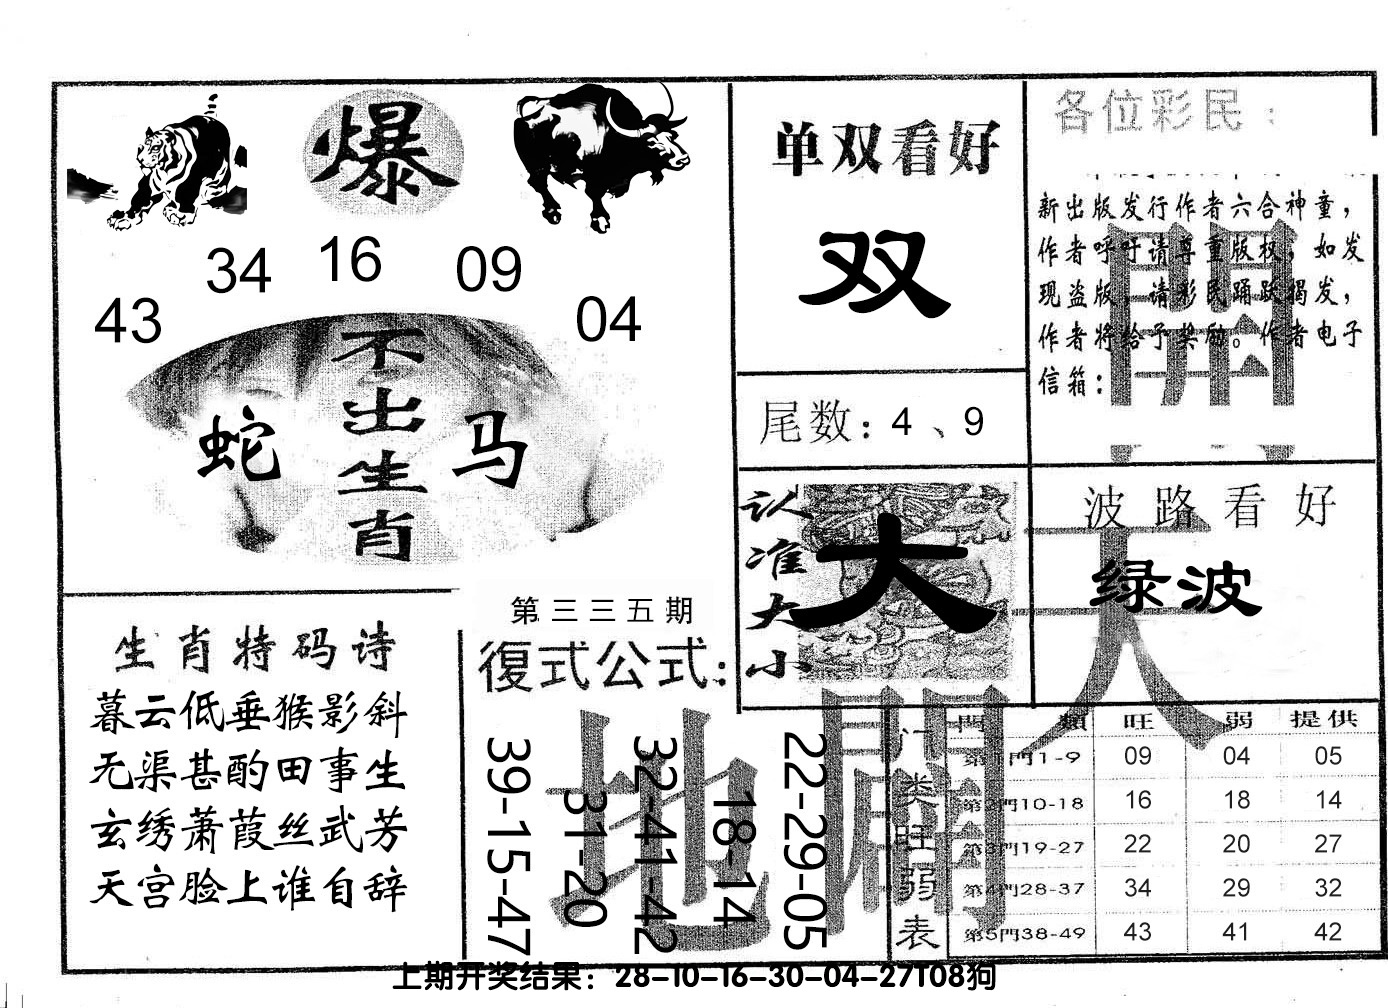 爆
43 34 16 09 04
不出生肖
蛇 马
单双看好
双
尾数：4、9
各位彩民：
新出版发行作者六合神童，
作者呼吁请尊重版权，如发
现盗版，请彩民踊跃揭发，
作者将给予奖励。作者电子
信箱：
開
认准大小
大
波路看好
绿波
天
生肖特码诗
暮云低垂猴影斜
无渠甚酌田事生
玄绣萧葭丝武芳
天宫脸上谁自辞
第三三五期
復式公式：
39-15-47
31-20
32-41-42
18-14
22-29-05
地
門类旺弱表
門類 旺 弱 提供
第1門1-9 09 04 05
第2門10-18 16 18 14
第3門19-27 22 20 27
第4門28-37 34 29 32
第5門38-49 43 41 42
上期开奖结果：28-10-16-30-04-27T08狗